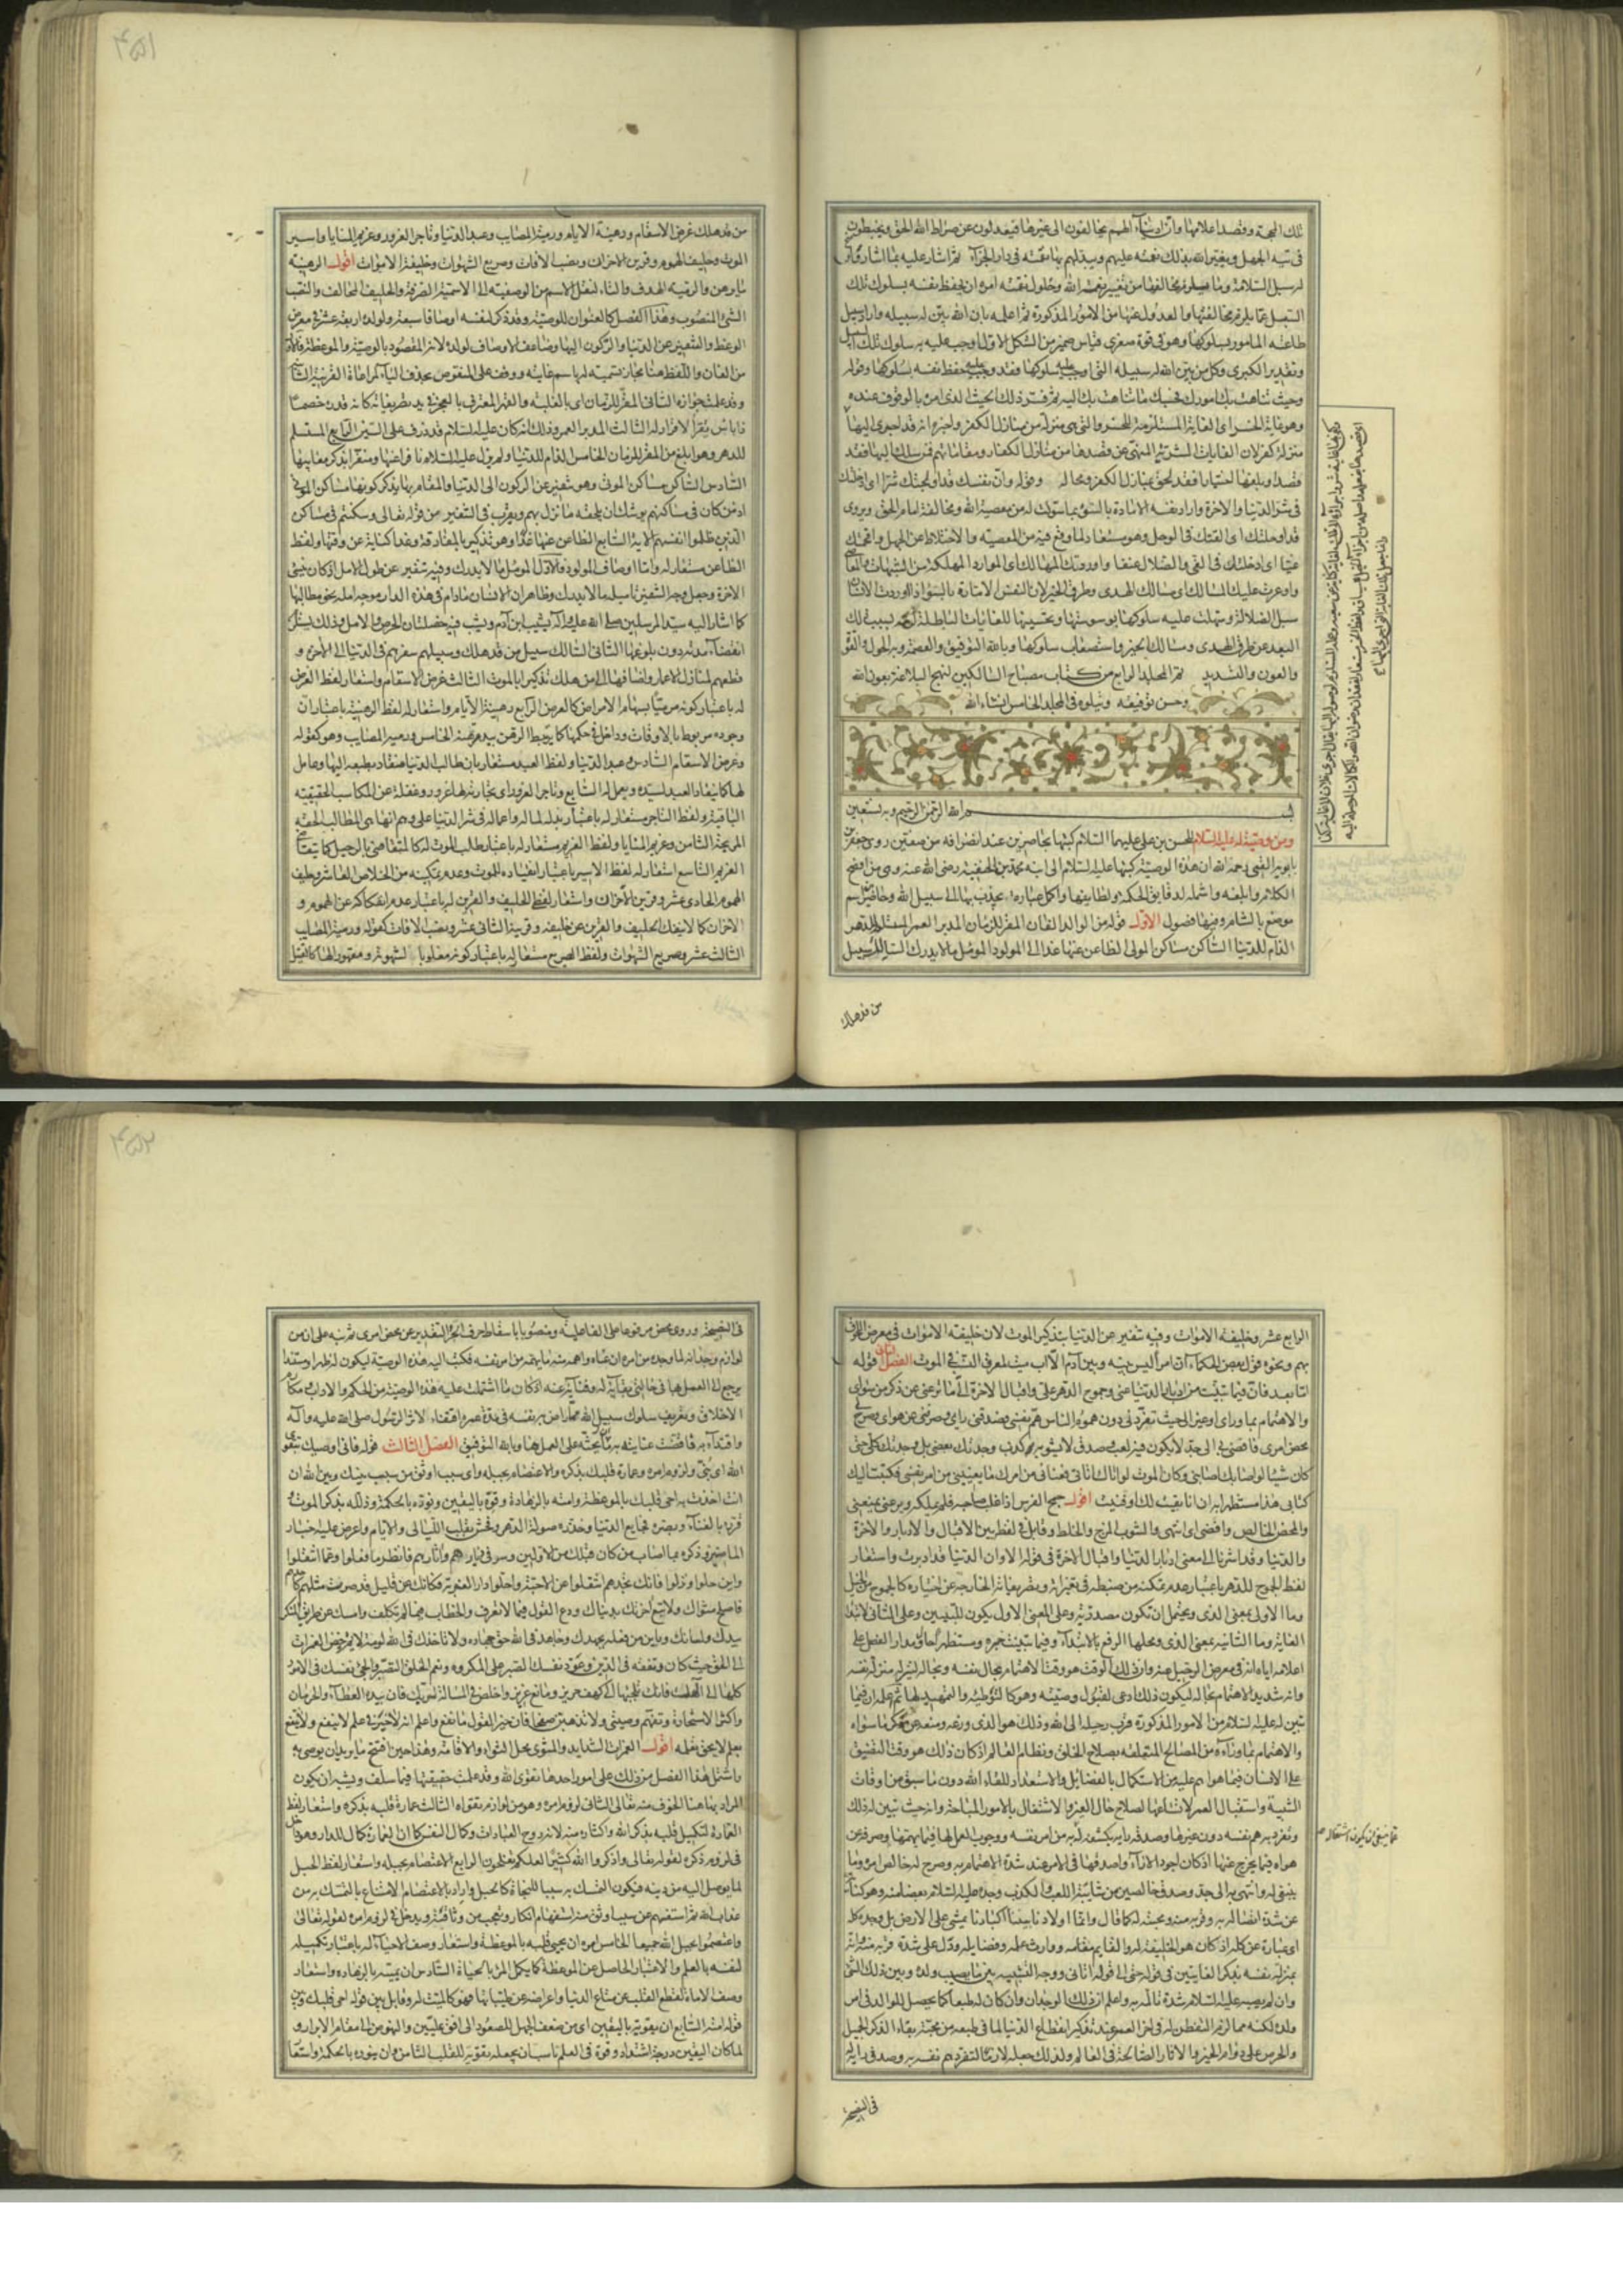 تلك المحجة وقصد اعلامها وان ادنياء الهمم يخالفون الى غيرها فيعدلون عن صراط الله الحق ويخبطون
فى تيه الجهل ويغير الله بذلك نعمته عليهم ويبدلهم بها نقمته فى دار الجزاء ثم اشار عليه
السبل عما يلزم مخالفتها والعدول عنها من الامور المذكورة ثم اعلمه بان الله بين له سبيله واراد سبيل
طاعته المامور بسلوكها وهو فى قوة صغرى قياس ضمير من الشكل الاول
وتقدير الكبرى وكل من بين الله له سبيله التى اوجب عليه سلوكها فقد وجب عليه حفظ نفسه بسلوكها وقوله
وحيث تناهت بك امورك فحسبك ما تناهت بك اليه ثم فسر ذلك بحيث الذى امره بالوقوف عنده
وهو غاية الخسر اى الغاية المستلزمة للخسر والتى هى منزلة من منازل الكفر واخبره انه قد اجرى اليها
منزلة كفر لان الغايات الشرية المنهى عن قصدها من منازل الكفار ومقاماتهم فمن سلك اليها فقد
قصد وبلغها اختيارا فقد لحق بمنازل الكفر ومحاله وقوله وان نفسك قد اولجتك شرا اى ادخلتك
فى شر الدنيا والاخرة واراد نفسه الامارة بالسوء بما سولت له من معصية الله ومخالفة امام الحق ويروى
قد اوحلتك اى القتك فى الوحل وهو مستعار لما وقع فيه من المعصية والاختلاط عن الجهل واقحمتك
غيا اى ادخلتك فى الغى والضلال عنفا واوردتك المهالك اى الموارد المهلكة من الشبهات والمعاصى
واوعرت عليك المسالك اى مسالك الهدى وطرق الخير لان النفس الامارة بالسوء اذا اوردت الانسان
سبل الضلالة وسهلت عليه سلوكها بوسوستها وتحسينها للغايات الباطلة لزمه بسبب ذلك
البعد عن طرق الهدى ومسالك الخير واستصعاب سلوكها وبالله التوفيق والعصمة وبه الحول والقوة
والعون والتسديد تم المجلد الرابع من كتاب مصباح السالكين لنهج البلاغة بعون الله
وحسن توفيقه ويتلوه فى المجلد الخامس انشاء الله
بسم الله الرحمن الرحيم وبه نستعين
ومن وصيته له عليه السلام للحسن بن على عليهما السلام كتبها بحاضرين عند انصرافه من صفين روى جعفر بن
بابويه القمى رحمه الله ان هذه الوصية كتبها عليه السلام الى ابنه محمد بن الحنفية رضى الله عنه وهى من افصح
الكلام وابلغه واشمله لدقايق الحكمة ولطايفها واكمل عبارة يجذب بها الى سبيل الله وحاضرين اسم
موضع بالشام وفيها فصول الاول قوله من الوالد الفان المقر للزمان المدبر العمر المستسلم للدهر
الذام للدنيا الساكن مساكن الموتى الظاعن عنها غدا الى المولود المؤمل ما لا يدرك السالك سبيل
من قد هلك
من قد هلك غرض الاسقام ورهينة الايام ورمية المصايب وعبد الدنيا وتاجر الغرور وغريم المنايا واسير
الموت وحليف الهموم وقرين الاحزان ونصب الافات وصريع الشهوات وخليفة الاموات اقول الرهينة
ما يرهن والرمية الهدف والتاء لنقل الاسم من الوصفية الى الاسمية الصرفة والحليف المحالف والنصب
الشئ المنصوب وهذا الفصل كالعنوان للوصية وقد ذكر لنفسه اوصافا سبعة ولولده اربعة عشر فى معرض
الوعظ والتنفير عن الدنيا والركون اليها وضاعف الاوصاف لولده لانه المقصود بالوصية والموعظة فالاول
من الفان واللفظ هنا مجاز تسمية له باسم غايته ووقف على المنقوص بحذف الياء لمراعاة القرينة الثانية
وقد علمت جوازه الثانى المقر للزمان اى بالغلبة والقهر المعترف بالعجز فى يد تصريفاته كانه قدره خصما
ذا باس يقر الاقران له الثالث المدبر العمر وذلك انه كان عليه السلام قد ذرف على الستين الرابع المستسلم
للدهر وهو ابلغ من المقر للزمان الخامس الذام للدنيا ولم يزل عليه السلام نافرا عنها ومنفرا بذكر معايبها
السادس الساكن مساكن الموتى وهو تنفير عن الركون الى الدنيا والمقام بها بذكر كونها مساكن الموتى
اذ من كان فى مساكنهم يوشك ان يلحقه ما نزل بهم ويقرب فى التنفير من قوله تعالى وسكنتم فى مساكن
الذين ظلموا انفسهم الاية السابع الظاعن عنها غدا وهو تذكير بالمفارقة وغدا كناية عن وقتها ولفظ
الظاعن مستعار له واما اوصاف المولود فالاول المؤمل ما لا يدرك وفيه تنفير عن طول الامل اذ كان ينسى
الاخرة وجعل وجه التنفير تاميله ما لا يدرك وظاهر ان الانسان ما دام فى هذه الدار موجه امله نحو مطالبها
كما اشار اليه سيد المرسلين صلى الله عليه وآله يشيب ابن آدم ويشب فيه خصلتان الحرص والامل وذلك يستلزم
انقضاء مدته دون بلوغها الثانى السالك سبيل من قد هلك وسبيلهم سفرهم فى الدنيا الى الاخرة و
قطعهم لمنازل الاعمار واضافها الى من هلك تذكير بالموت الثالث غرض الاسقام واستعار لفظ الغرض
له باعتبار كونه مرميا بسهام الامراض كالغرض الرابع رهينة الايام واستعار له لفظ الرهينة باعتبار ان
وجوده مربوط بالاوقات وداخل فى حكمها كما يرتبط الرهن بيد مرتهنه الخامس ورمية المصايب وهو كقوله
وغرض الاسقام السادس وعبد الدنيا ولفظ العبد مستعار بان طالب الدنيا منقاد بطبعه اليها وعامل
لها كما ينقاد العبد لسيده ويعمل له السابع وتاجر الغرور اى تجارته لها غرور وغفلة عن المكاسب الحقيقية
الباقية ولفظ التاجر مستعار له باعتبار بذله لماله واعماله فى شر الدنيا على وهم انها هى المطالب الحقة
المربحة الثامن وغريم المنايا ولفظ الغريم مستعار له باعتبار طلب الموت له كالمتقاضى بالرحيل كما يتقاضى
الغريم التاسع استعار له لفظ الاسير باعتبار انقياده للموت وعدم تمكنه من الخلاص العاشر وحليف
الهموم الحادى عشر وقرين الاحزان واستعار لفظى الحليف والقرين له باعتبار عدم انفكاكه عن الهموم و
الاحزان كما لا ينفك الحليف والقرين عن حليفه وقرينه الثانى عشر ونصب الافات كقوله ورمية المصايب
الثالث عشر وصريع الشهوات ولفظ الصريع مستعار له باعتبار كونه مغلوبا لشهوته ومقهورا لها كالقتيل
الرابع عشر وخليفة الاموات وفيه تنفير عن الدنيا بتذكير الموت لان خليفة الاموات فى معرض اللحاق
بهم ونحوه قول بعض الحكماء ان امرأ ليس بينه وبين آدم الا اب ميت لمعرق النسب فى الموت الفصل الثانى قوله
اما بعد فان فيما تبينت من ادبار الدنيا عنى وجموح الدهر على واقبال الاخرة الى ما يزعنى عن ذكر من سواى
والاهتمام بما وراى غير انى حيث تفرد بى دون هموم الناس هم نفسى فصدقنى رايى وصرفنى عن هواى وصرح لى
محض امرى فافضى بى الى جد لا يكون فيه لعب وصدق لا يشوبه كذب وجدتك بعضى بل وجدتك كلى حتى
كان شيئا لو اصابك اصابنى وكان الموت لو اتاك اتانى فعنانى من امرك ما يعنينى من امر نفسى فكتبت اليك
كتابى هذا مستظهرا به ان انا بقيت لك او فنيت اقول جمح الفرس اذا غلب صاحبه فلم يملكه ويزعنى يمنعنى
والمحض الخالص وافضى اى انتهى والشوب المزج والخلط وقابل فى لفظ بين الاقبال والادبار والاخرة
والدنيا وقد اشرنا الى معنى ادبار الدنيا واقبال الاخرة فى قوله الا وان الدنيا قد ادبرت واستعار
لفظ الجموح للدهر باعتبار عدم تمكنه من ضبطه فى تغيراته وتصريفاته الخارجة عن اختياره كالجموح من الخيل
وما الاولى بمعنى الذى ويحتمل ان تكون مصدرية وعلى المعنى الاول يكون من للتبيين وعلى الثانى لابتداء
الغاية وما الثانية بمعنى الذى ومحلها الرفع بالابتداء وفيما تبينت خبره
اعلامه اياه انه فى معرض الرحيل وان ذلك الوقت هو وقت الاهتمام بحال نفسه وبحاله لتنزله منزلة نفسه
وانه شديد الاهتمام بحاله ليكون ذلك ادعى لقبول وصيته وهو كالتوطئة والتمهيد لها ثم اعلمه ان فيما
تبين له عليه السلام من الامور المذكورة قرب رحيله الى الله وذلك هو الذى وزعه ومنعه عن ذكر ما سواه
والاهتمام بما وراءه من المصالح المتعلقة بصلاح الخلق ونظام العالم اذ كان ذلك هو وقت التضيق
على الانسان فيما هو اهم عليه من الاستكمال بالفضايل والاستعداد للقاء الله دون ما سبق من اوقات
الشبيبة واستقبال العمر لاتساعها لصلاح حال الغير والاشتغال بالامور المباحة وانه حيث تبين له ذلك
وتفرد به هم نفسه دون غيرها وصدقه رايه بكشفه له من امر نفسه ووجوب العمل لها فيما يهمها وصرفه عن
هواه فيما يخرج عنها اذ كان اجود الاراء واصدقها فى الامر عند شدة الاهتمام به وصرح له خالص امره وما
ينبغى له وانتهى به الى جد وصدق خالصين من شايبة اللعب والكذب وجده عليه السلام بعضا منه وهو كناية
عن شدة اتصاله به وقربه منه ومحبته له كما قال وانما اولادنا بيننا اكبادنا تمشى على الارض بل وجده كله
اى عبارة عن كله اذ كان هو الخليفة له والقايم مقامه ووارث علمه وفضايله ودل على شدة قربه منه وانه
بمنزلة نفسه بذكر الغايتين فى قوله حتى الى قوله اتانى ووجه التشبيه بين ما يصيب ولده وبين ذلك الشئ
وان لم يصبه عليه السلام شدة تالمه به واعلم ان ذلك الوجدان وان كان له طبعا كما يحصل للوالد فى امر
ولده لكنه مما لزم التفطن له فى اخر العمر عند تذكير انقطاع الدنيا لما فى طبعه من محبة بقاء الذكر الجميل
والحرص على دوام الخير والاثار الصالحة فى العالم ولذلك جعله لازما لتفرد هم نفسه به وصدق رايه
عما سبق من كون اشتغاله
فى النصيحة
فى النصيحة وروى محض مرفوعا على الفاعلية ومنصوبا باسقاط حرف الجر والتقدير عن محض امرى ثم نبه على ان من
لوازم وجدانه لما وجده من امره ان عناه واهمه منه ما يهمه من امر نفسه فكتب اليه هذه الوصية ليكون له ظهرا ومستندا
يرجع الى العمل بها فى حالتى بقائه له وفنائه عنه اذ كان ما اشتملت عليه هذه الوصية من الحكم والاداب ومكارم
الاخلاق وتعريف سلوك سبيل الله مما راض به نفسه فى مدة عمره اقتفاء لاثر الرسول صلى الله عليه وآله
واقتداء به فاقتضت عنايته به ان يحثه على العمل بها وبالله التوفيق الفصل الثالث قوله فانى اوصيك بتقوى
الله اى بنى ولزوم امره وعمارة قلبك بذكره والاعتصام بحبله واى سبب اوثق من سبب بينك وبين الله ان
انت اخذت به احى قلبك بالموعظة وامته بالزهادة وقوه باليقين ونوره بالحكمة وذلله بذكر الموت و
قرره بالفناء وبصره فجايع الدنيا وحذره صولة الدهر وفحش تقلب الليالى والايام واعرض عليه اخبار
الماضين وذكره بما اصاب من كان قبلك من الاولين وسر فى ديارهم وآثارهم فانظر ما فعلوا وعما انتقلوا
واين حلوا ونزلوا فانك تجدهم انتقلوا عن الاحبة وحلوا دار الغربة فكانك عن قليل قد صرت كاحدهم
فاصلح مثواك ولا تبع آخرتك بدنياك ودع القول فيما لا تعرف والخطاب فيما لم تكلف وامسك عن طريق
بيدك ولسانك وباين من فعله بجهدك وجاهد فى الله حق جهاده ولا تاخذك فى الله لومة لائم وخض الغمرات
الى الحق حيث كان وتفقه فى الدين وعود نفسك الصبر على المكروه ونعم الخلق التصبر والجئ نفسك فى الامور
كلها الى الهك فانك تلجيها الى كهف حريز ومانع عزيز واخلص فى المسالة لربك فان بيده العطاء والحرمان
واكثر الاستخارة وتفهم وصيتى ولا تذهبن صفحا فان خير القول ما نفع واعلم انه لا خير فى علم لا ينفع ولا ينتفع
بعلم لا يحق تعلمه اقول الغمرات الشدايد والمثوى محل الثواء والاقامة وهذا حين افتتح ما يريد ان يوصى به
واشتمل هذا الفصل من ذلك على امور احدها تقوى الله وقد علمت حقيقتها فيما سلف ويشبه ان يكون
المراد بها هنا الخوف منه تعالى الثانى لزوم امره وهو من لوازم تقواه الثالث عمارة قلبه بذكره واستعار لفظ
العمارة لتكميل قلبه بذكر الله واكثاره منه لانه روح العبادات وكمال النفس كما ان العمارة كمال للدار وهو داخل
فى لزوم ذكره لقوله تعالى واذكروا الله كثيرا لعلكم تفلحون الرابع الاعتصام بحبله واستعار لفظ الحبل
لما يوصل اليه من دينه فيكون التمسك به سببا للنجاة كالحبل واراد بالاعتصام الامتناع بالتمسك به من
عذاب الله ثم استفهم عن سبب اوثق منه استفهام انكار وتعجب من وثاقته ويدخل فى لزوم امره لقوله تعالى
واعتصموا بحبل الله جميعا الخامس امره ان يحيى قلبه بالموعظة واستعار وصف الاحياء له باعتبار تكميله
لنفسه بالعلم والاعتبار الحاصل عن الموعظة كما يكمل المرء بالحياة السادس ان يميته بالزهادة واستعار
وصف الاماتة لقطع القلب عن متاع الدنيا واعراضه عن طيباتها فهو كالميت له وقابل بين قوله احى قلبك وبين
قوله امته السابع ان يقويه باليقين اى من ضعف الجهل للصعود الى افق عليين والنهوض الى مقام الابرار و
لما كان اليقين درجة اشتداد وقوة فى العلم ناسب ان يجعله تقوية للقلب الثامن وان ينوره بالحكمة واستعار